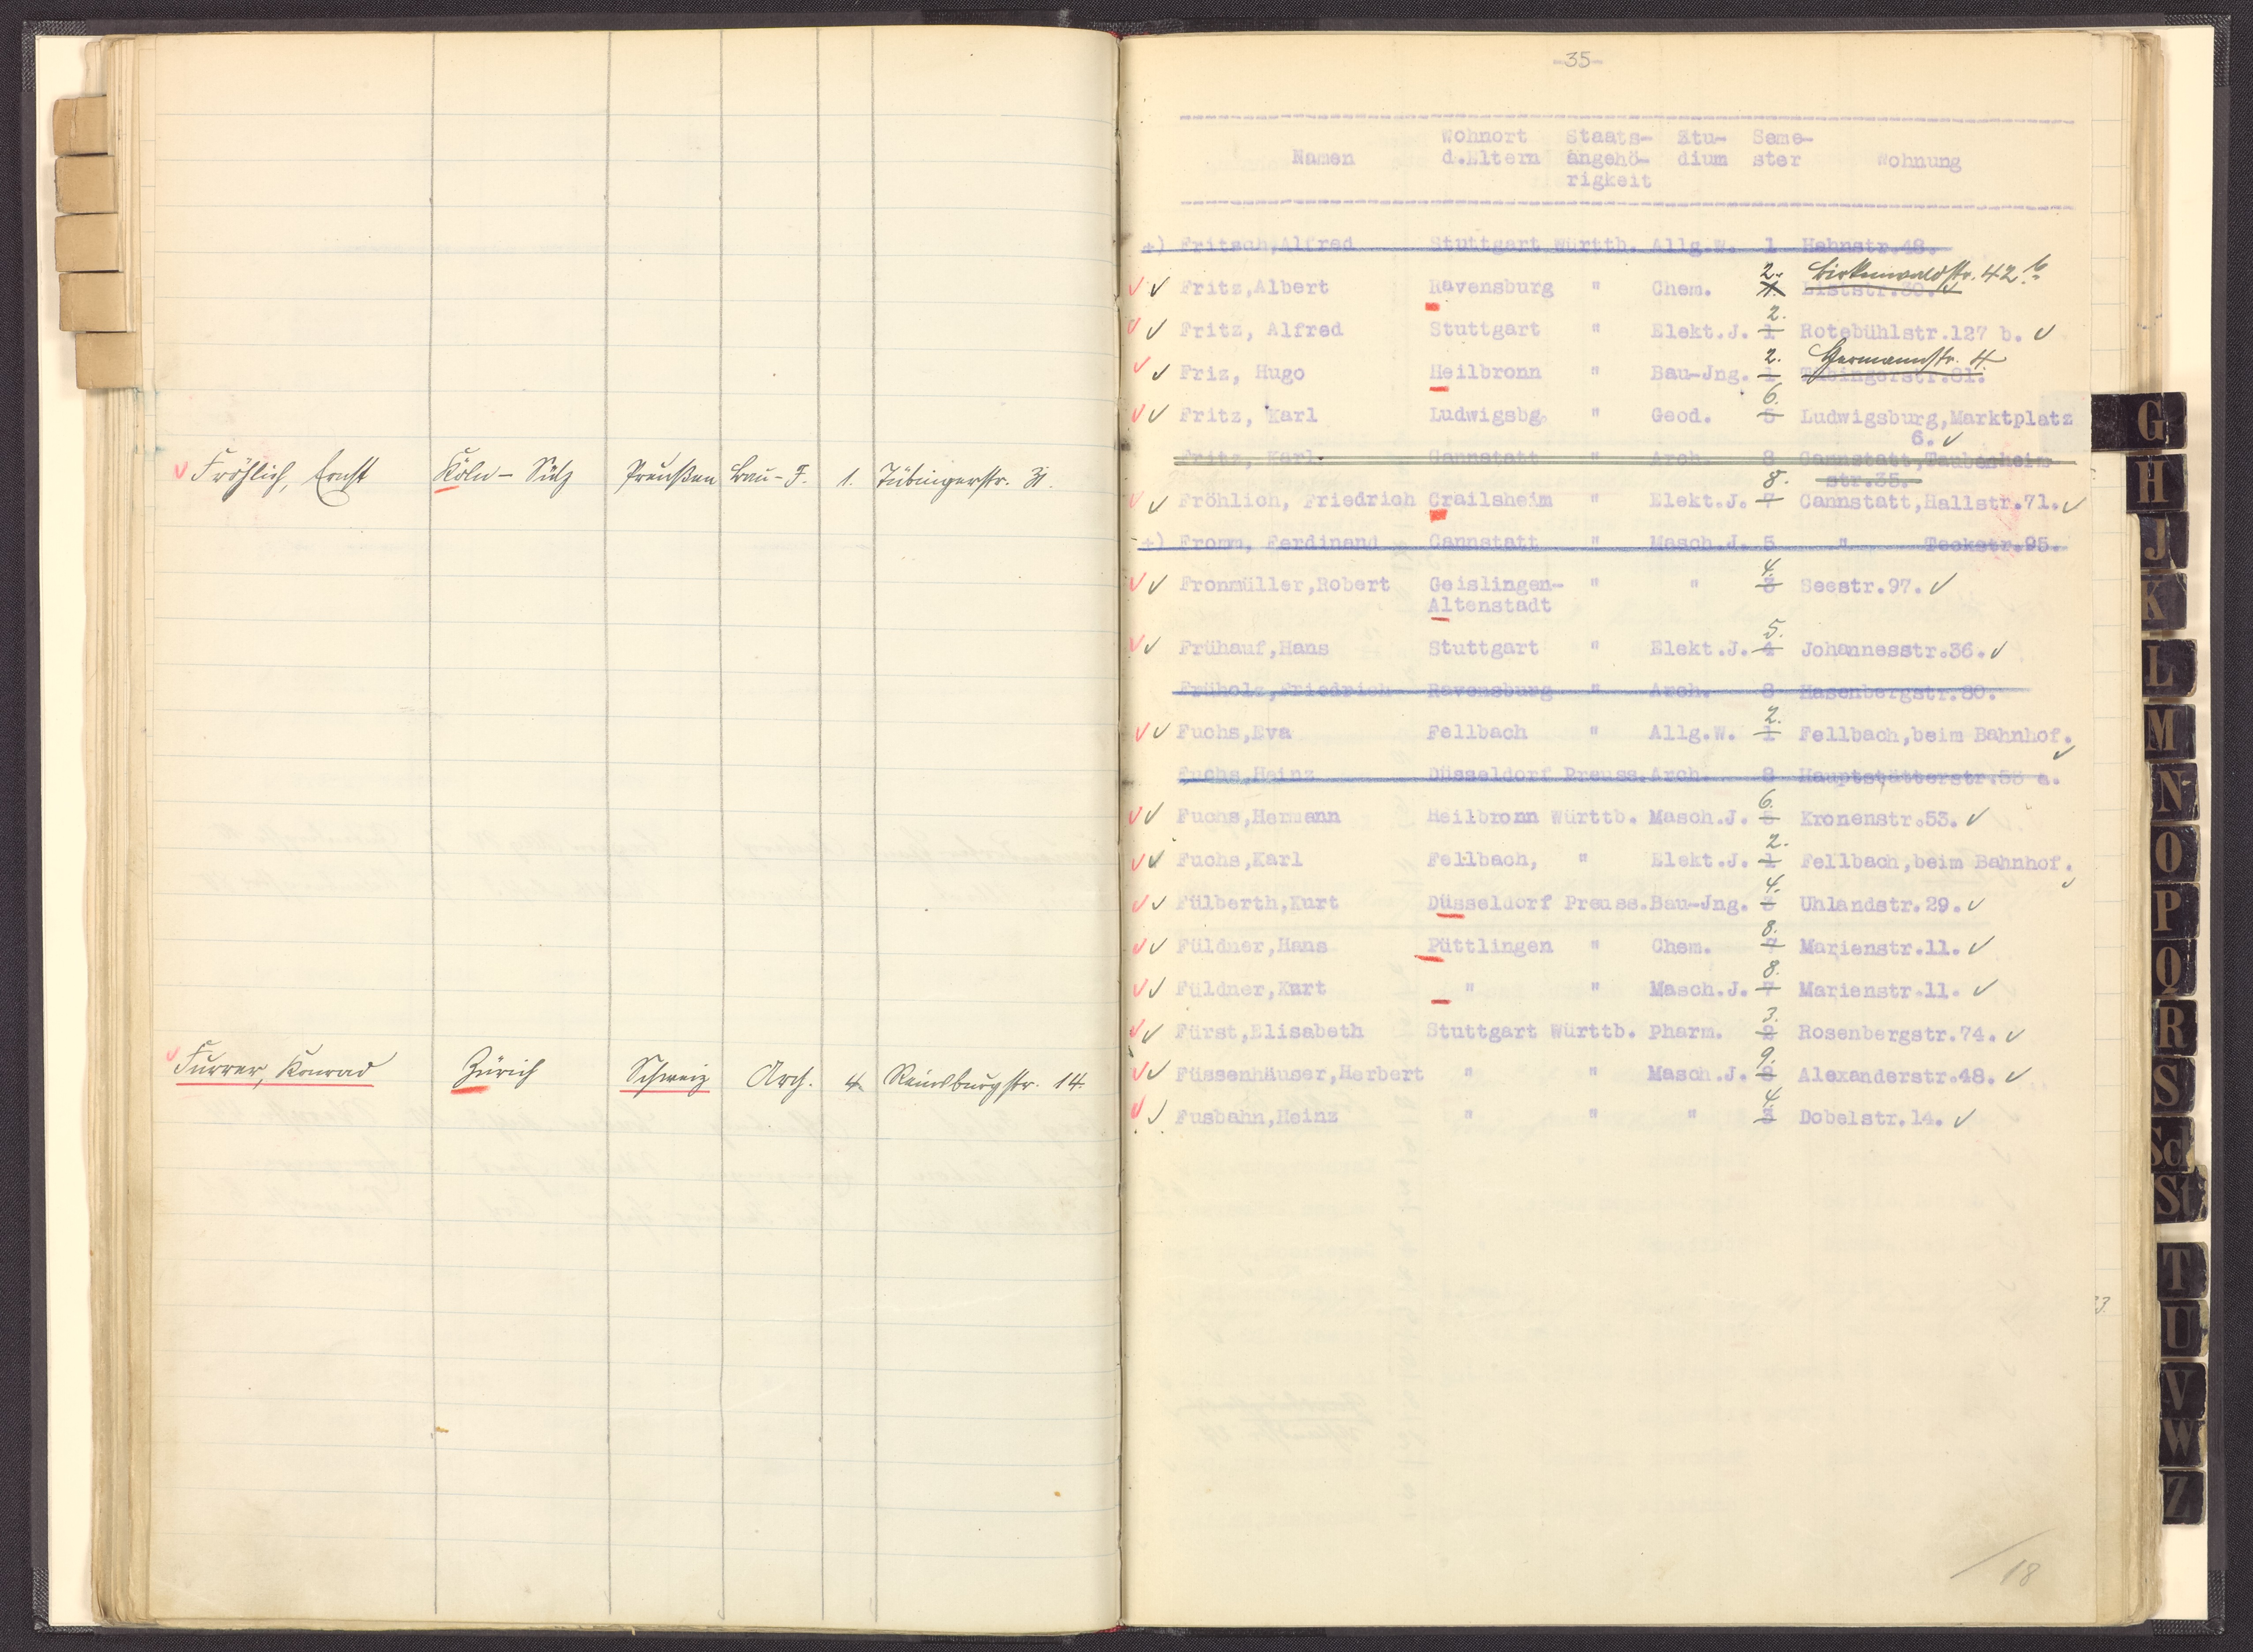 Fröhlich, Ernst Köln-Sülz Preußen Bau-J. 1. Tübingerstr. 31.
Furrer, Konrad Zürich Schweiz Arch. 4. Reinsburgstr. 14.
-35-
Wohnort Staats- Stu- Seme-
Namen d.Eltern angehö- dium ster Wohnung
rigkeit
+) Fritsch,Alfred Stuttgart Württb. Allg.W. 1 Hahnstr.48.
2. Birkenwaldstr. 42 b
Fritz,Albert Ravensburg " Chem. 1. Liststr.30.
2.
Fritz, Alfred Stuttgart " Elekt.J. 1 Rotebühlstr.127 b.
2. Hermannstr. 4.
Friz, Hugo Heilbronn " Bau-Jng. 1 Tübingerstr.81.
6.
Fritz, Karl Ludwigsbg. " Geod. 5 Ludwigsburg,Marktplatz
6.
Fritz, Karl Cannstatt " Arch. 8 Cannstatt,Taubenheim-
8. str.35.
Fröhlich, Friedrich Crailsheim " Elekt.J. 7 Cannstatt,Hallstr.71.
+) Fromm, Ferdinand Cannstatt " Masch.J. 5 " Teckstr.95.
4.
Fronmüller,Robert Geislingen- " " 3 Seestr.97.
Altenstadt
5.
Frühauf,Hans Stuttgart " Elekt.J. 4 Johannesstr.36.
Früholz,Friedrich Ravensburg " Arch. 8 Hasenbergstr.80.
2.
Fuchs,Eva Fellbach " Allg.W. 1 Fellbach,beim Bahnhof.
Fuchs,Heinz Düsseldorf Preuss.Arch. 8 Hauptstätterstr.53 a.
6.
Fuchs,Hermann Heilbronn Württb. Masch.J. 5 Kronenstr.53.
2.
Fuchs,Karl Fellbach, " Elekt.J. 1 Fellbach,beim Bahnhof.
4.
Fülberth,Kurt Düsseldorf Preuss.Bau-Jng. 3 Uhlandstr.29.
8.
Füldner,Hans Püttlingen " Chem. 7 Marienstr.11.
8.
Füldner,Kurt " " Masch.J. 7 Marienstr.11.
3.
Fürst,Elisabeth Stuttgart Württb. Pharm. 2 Rosenbergstr.74.
9.
Füssenhäuser,Herbert " " Masch.J. 8 Alexanderstr.48.
4.
Fusbahn,Heinz " " " 3 Dobelstr.14.
18
G
H
J
K
L
M
N
O
P
Q
R
S
Sch
St
T
U
V
W
Z